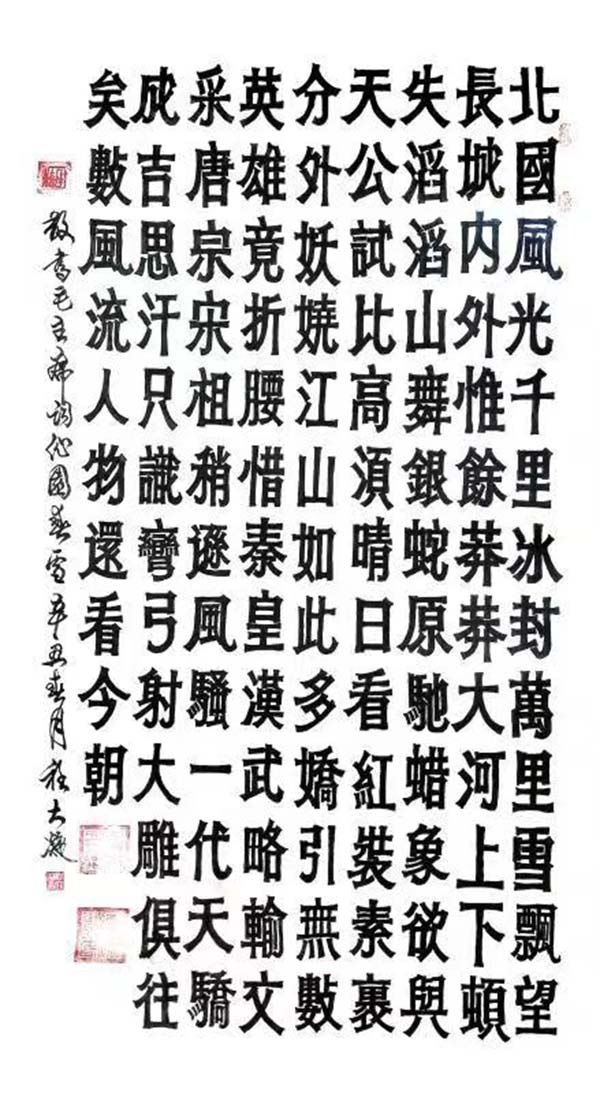 北國風光千里冰封萬里雪飄望
長城内外惟餘莽莽大河上下頓
失滔滔山舞銀蛇原馳蜡象欲與
天公試比高湏晴日看紅裝素裹
分外妖嬈江山如此多嬌引無數
英雄竟折腰惜秦皇漢武略輸文
采唐宗宋祖稍遜風騷一代天驕
成吉思汗只識彎弓射大雕俱往
矣數風流人物還看今朝
敬書毛主席詞沁園春雪辛丑春月